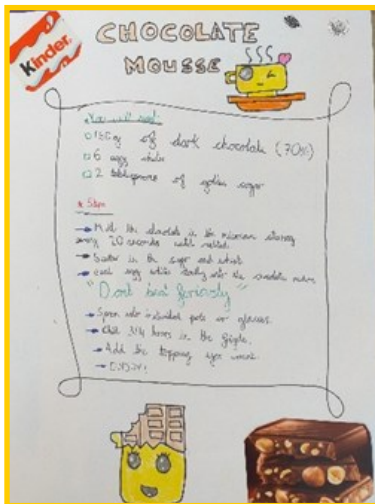 Kinder
CHOCOLATE
MOUSSE
You will need:
150g of dark chocolate (70%)
6 egg
2 tablespoons of sugar
Steps
Melt the chocolate in the microwave
20 seconds until melted.
in the sugar and
egg whites into the chocolate
"Dont beat furiously"
Spoon into individual pots or glasses.
Chill 3/4 hours in the fridge.
Add the topping you want.
ENJOY!